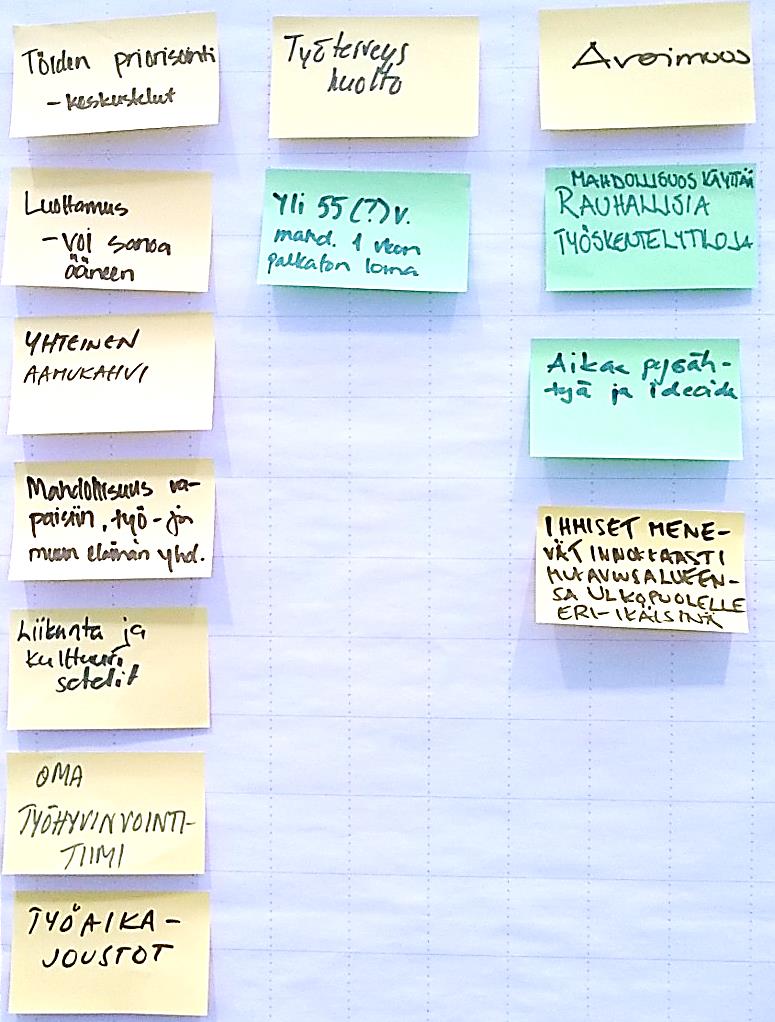 Töiden priorisointi
- keskustelut
Luottamus
- voi sanoa
ääneen
YHTEINEN
AAMUKAHVI
Mahdollisuus va-
paisiin, työ- ja
muun elämän yhd.
Liikunta ja
kulttuuri
setelit
OMA
TYÖHYVINVOINTI-
TIIMI
TYÖAIKA-
JOUSTOT
Työterveys
huolto
Yli 55 (?) v.
mahd. 1 vuoden
palkaton loma
Avoimuus
MAHDOLLISUUS KÄYTTÄÄ
RAUHALLISIA
TYÖSKENTELYTILOJA
Aikaa pysäh-
tyä ja ideoida
IHMISET MENE-
VÄT INNOKKAASTI
MUKAVUUSALUEEN-
SA ULKOPUOLELLE
ERI-IKÄISINÄ